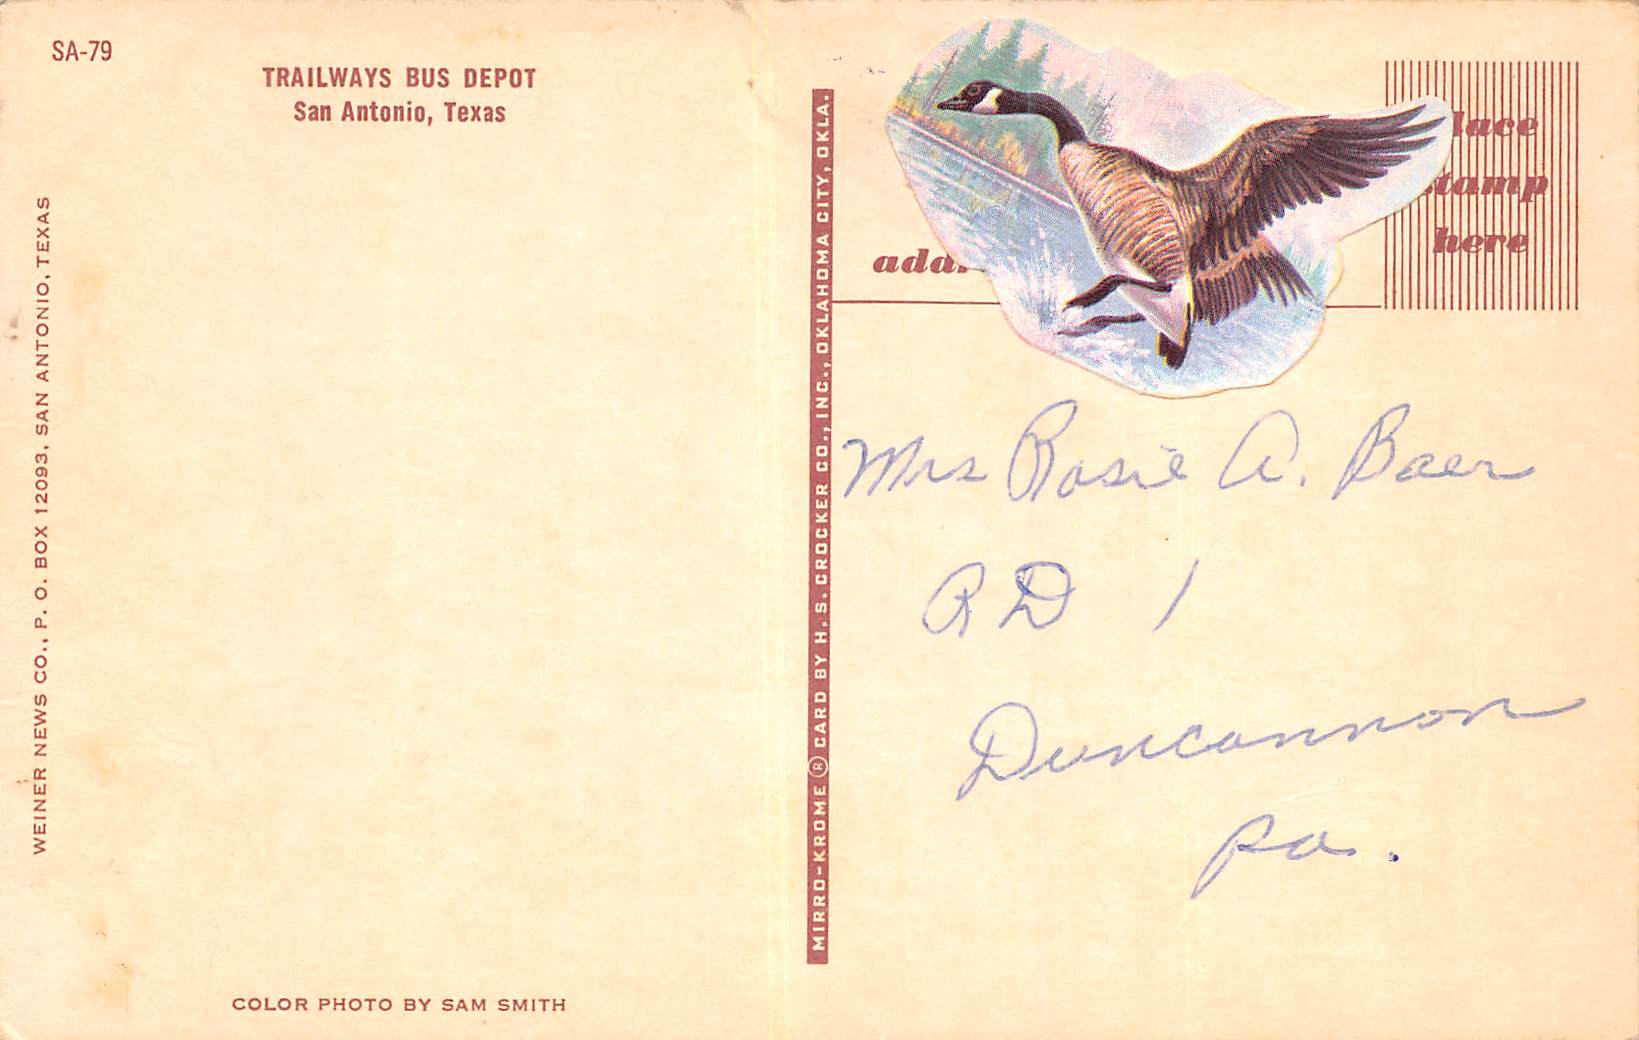 SA-79
TRAILWAYS BUS DEPOT
San Antonio, Texas
WEINER NEWS CO., P. O. BOX 12093, SAN ANTONIO, TEXAS
COLOR PHOTO BY SAM SMITH
MIRRO-KROME ® CARD BY H. S. CROCKER CO., INC., OKLAHOMA CITY, OKLA.
lace
tamp
here
add
Mrs Rosie A. Baer
RD 1
Duncannon
Pa.